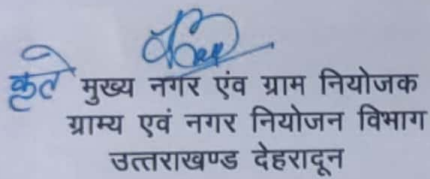 कृते मुख्य नगर एंव ग्राम नियोजक
ग्राम्य एवं नगर नियोजन विभाग
उत्तराखण्ड देहरादून